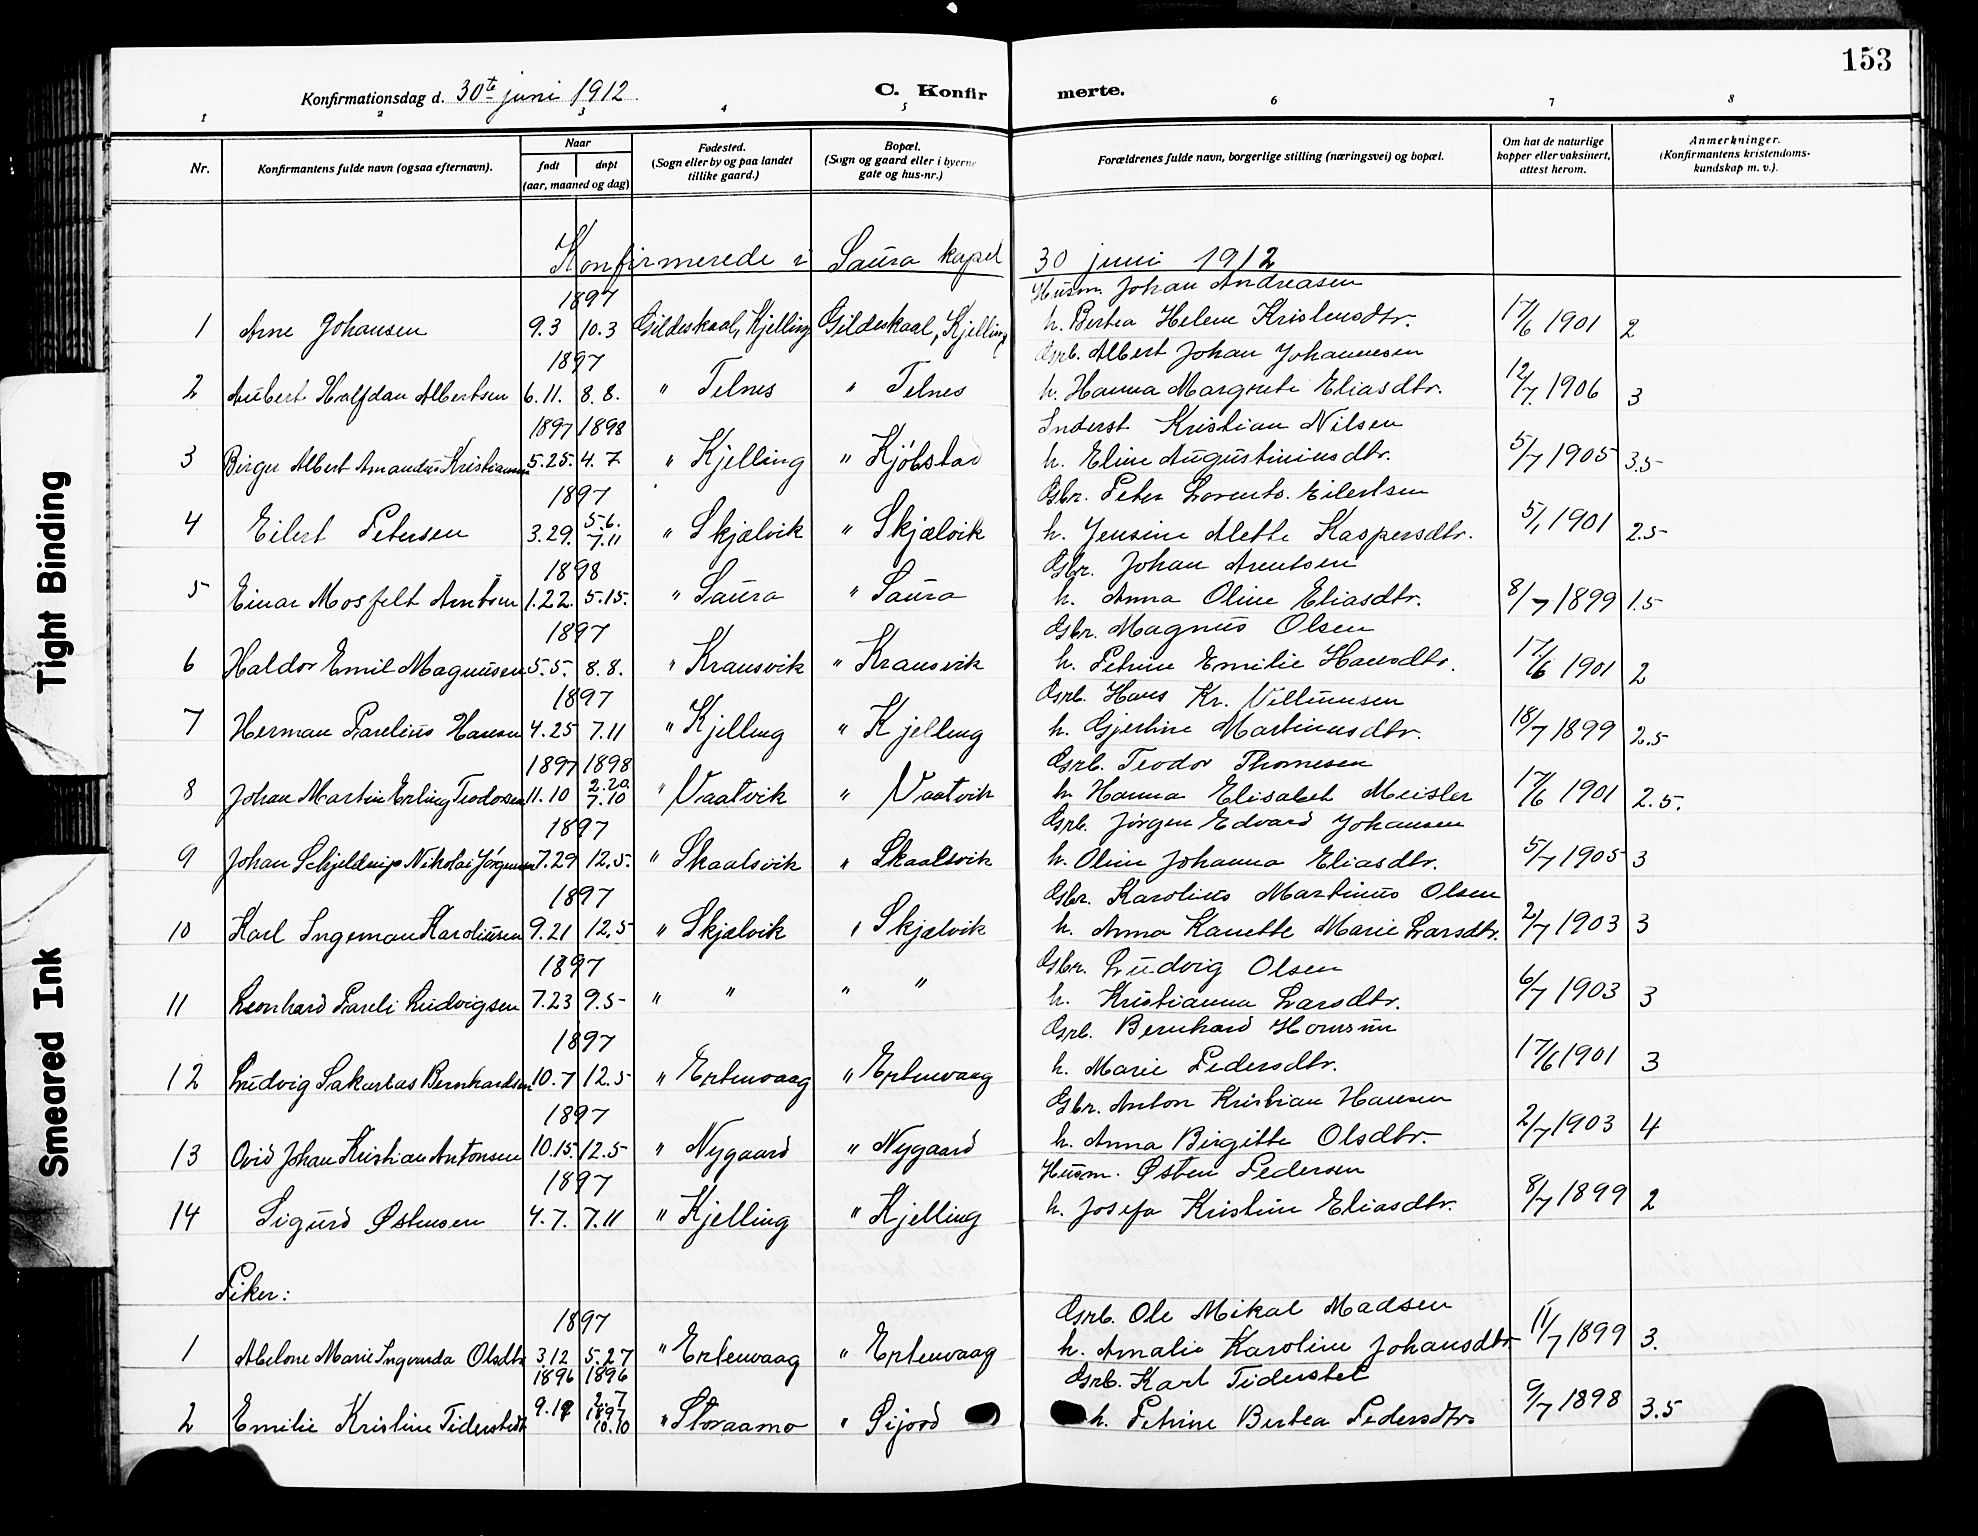 153
Konfirmationsdag d. 30te juni 1912 C. Konfirmerte.
1 2 3 4 5 6 7 8
Nr. Konfirmantens fulde navn (ogsaa efternavn). Naar født døpt (aar, maaned og dag) Fødested. (Sogn eller by og paa landet tillike gaard.) Bopæl. (Sogn og gaard eller i byerne gate og hus-nr.) Forældrenes fulde navn, borgerlige stilling (næringsvei) og bopæl. Om hat de naturlige kopper eller vaksinert, attest herom. Anmerkninger. (Konfirmantens kristendoms-kundskap m. v.).
Konfirmerede i Saura kapel 30 juni 1912
1897 Husm. Johan Andreasen
1 Arne Johansen 9.3 10.3 Gildeskaal, Kjelling Gildeskaal, Kjelling h. Bertea Helene Kristensdtr. 17/6 1901 2
1897 Grb. Albert Johan Johannesen
2 Aubert Halfdan Albertsen 6.11. 8.8. " Telnes " Telnes h. Hanna Margrete Eliasdtr. 12/7. 1906 3
1897 1898 Inderst Kristian Nilsen
3 Birger Albert Amandus Kristiansen 5.25. 4.7 " Kjelling " Kjøbstad h. Eline Augustiniusdtr. 5/7 1905 3.5
1897 Gbr. Peter Lorents. Eilertsen
4 Eilert Petersen 3.29. 5.6. 7.11 " Skjælvik " Skjælvik h. Jensine Alette Kaspersdtr. 5/7 1901 2.5
1898 Gbr. Johan Arntsen
5 Einar Mosfelt Arntsen 1.22. 5.15. " Saura " Saura h. Anna Oline Eliasdtr. 8/7 1899 1.5
1897 Gbr. Magnus Olsen
6 Haldor Emil Magnusen 5.5. 8.8. " Kransvik " Kransvik h. Petrine Emilie Hansdtr. 17/6 1901 2
1897 Grb. Hans Kr. Villumsen
7 Herman Parelius Hansen 4.25 7.11 " Kjelling " Kjelling h. Gjertine Martinusdtr. 18/7 1899 2.5
1897 1898 Grb. Teodor Thomesen
8 Johan Martin Erling Teodorsen 11.10 2.20. 7.10 " Vaatvik " Vaatvik h. Hanna Elisabet Meisler 17/6 1901 2.5.
1897 Grb. Jørgen Edvard Johansen
9 Johan Schjeldrup Nikolai Jørgensen 7.29 12.5. " Skaalsvik " Skaalsvik h. Oline Johanna Eliasdtr. 5/7 1905 3
1897 Gbr. Karolius Martinus Olsen
10 Karl Ingeman Karoliusen 9.21 12.5 " Skjælvik " Skjælvik h. Anna Kanette Marie Larsdtr. 2/7 1903 3
1897 Gbr. Ludvig Olsen
11 Leonhard Pareli Ludvigsen 7.23 9.5 " " " " h. Kristianna Larsdtr. 6/7 1903 3
1897 Grb. Bernhard
12 Ludvig Sakarias Bernhardsen 10.7 12.5 " Ertenvaag " Ertenvaag h. Marie Pedersdtr. 17/6 1901 3
1897 Gbr. Anton Kristian Hansen
13 Ovid Johan Kristian Antonsen 10.15. 12.5 " Nygaard " Nygaard h. Anna Birgitte Olsdtr. 2/7 1903 4
1897 Husm. Østen Pedersen
14 Sigurd Østensen 4.7. 7.11 " Kjelling " Kjelling h. Josefa Kristine Eliasdtr. 8/7 1899 2
Piker:
1897 Grb. Ole Mikal Madsen
1 Abelone Marie Ingvarda Olsdtr 3.12 5.27 " Ertenvaag " Ertenvaag h. Amalie Karoline Johansdtr 11/7 1899 3.
1896 1896 Grb. Karl Tiderstet
2 Emilie Kristine Tiderstedt 9.19 2.7 1897 10.10 " Storaamo " Sijord h. Petrine Bertea Pedersdtr 9/7 1898 3.5
Tight Binding
Smeared Ink